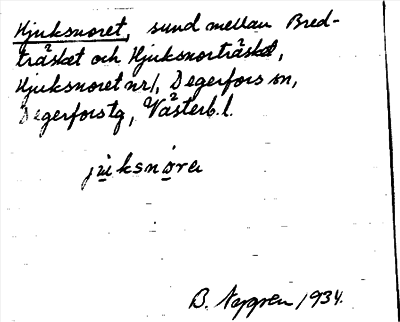 Hjuksnoret, sund mellan Bred-
träsket och Hjuksnorträsket,
Hjuksnoret nr 1, Degerfors sn,
Degerfors tg, Västerb. l.
juksnøra
B. 1934.